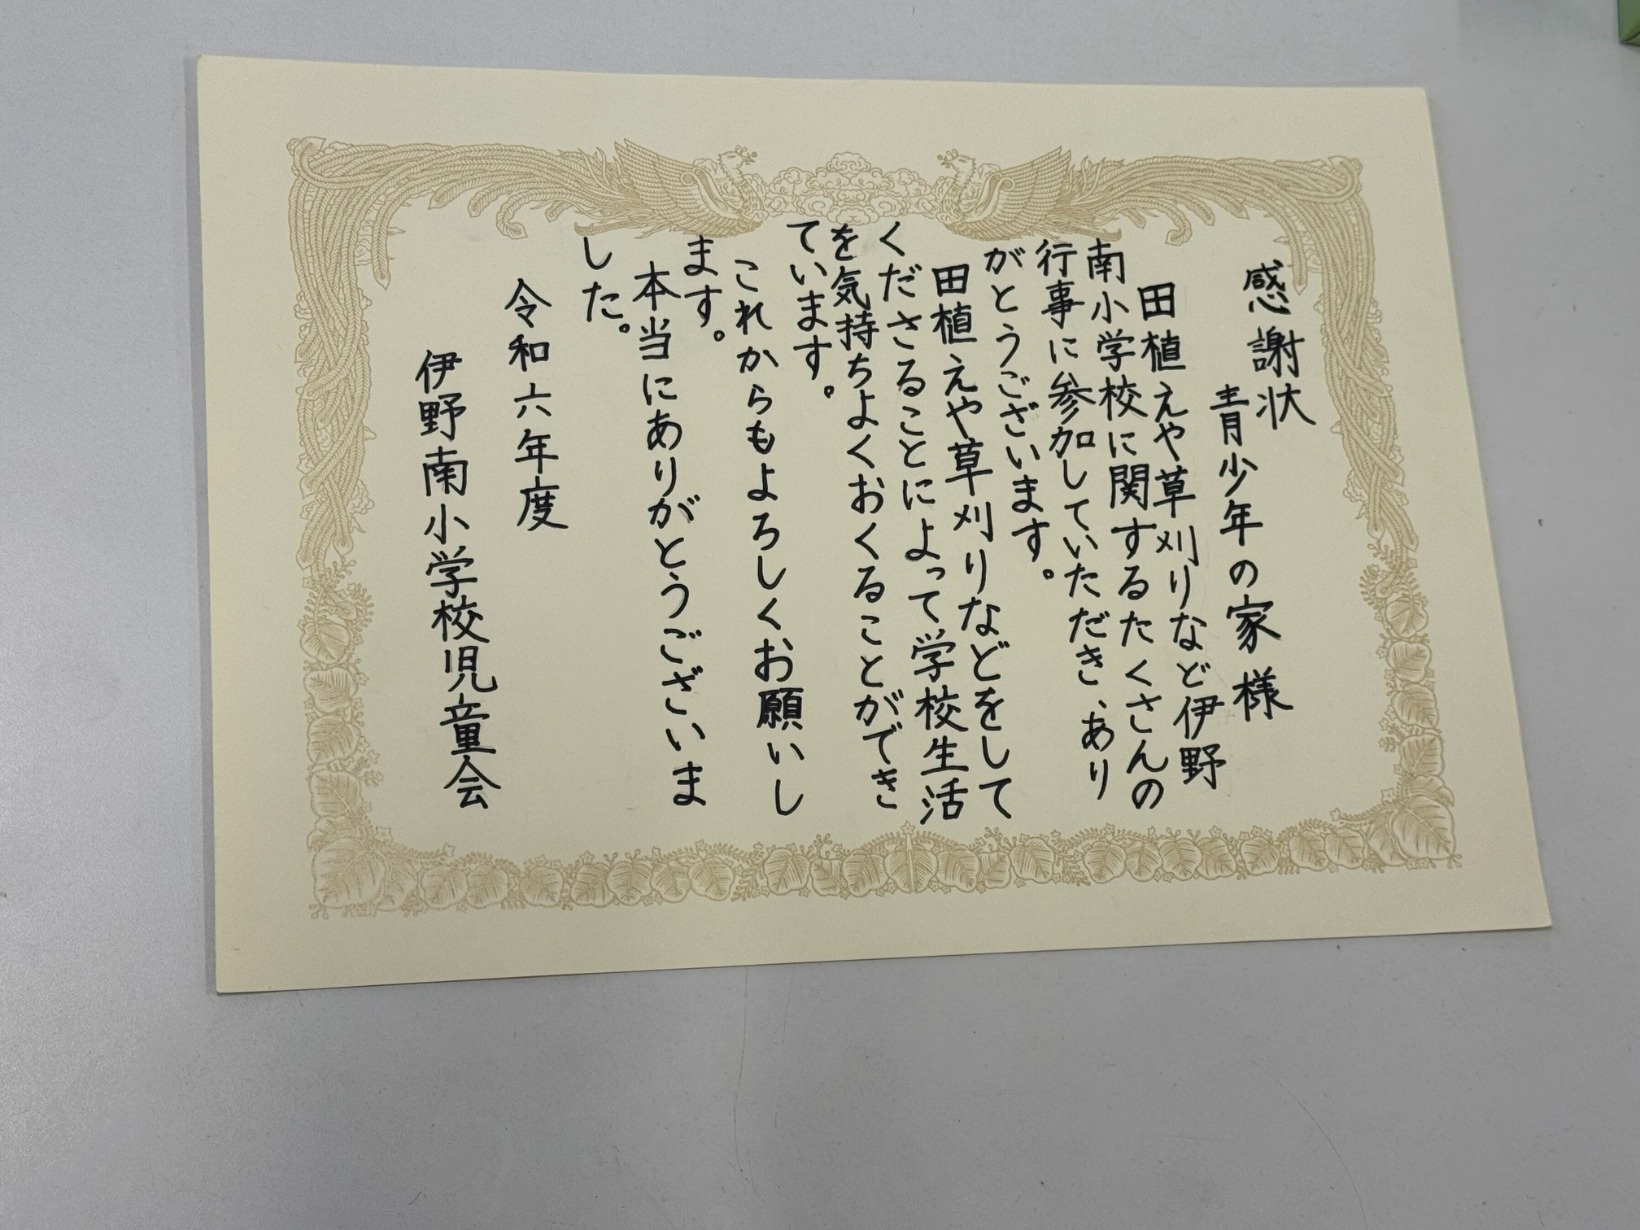 感謝状
青少年の家様
田植えや草刈りなど伊野
南小学校に関するたくさんの
行事に参加していただき、あり
がとうございます。
田植えや草刈りなどをして
くださることによって学校生活
を気持ちよくおくることができ
ています。
これからもよろしくお願いし
ます。
本当にありがとうございま
した。
令和六年度
伊野南小学校児童会